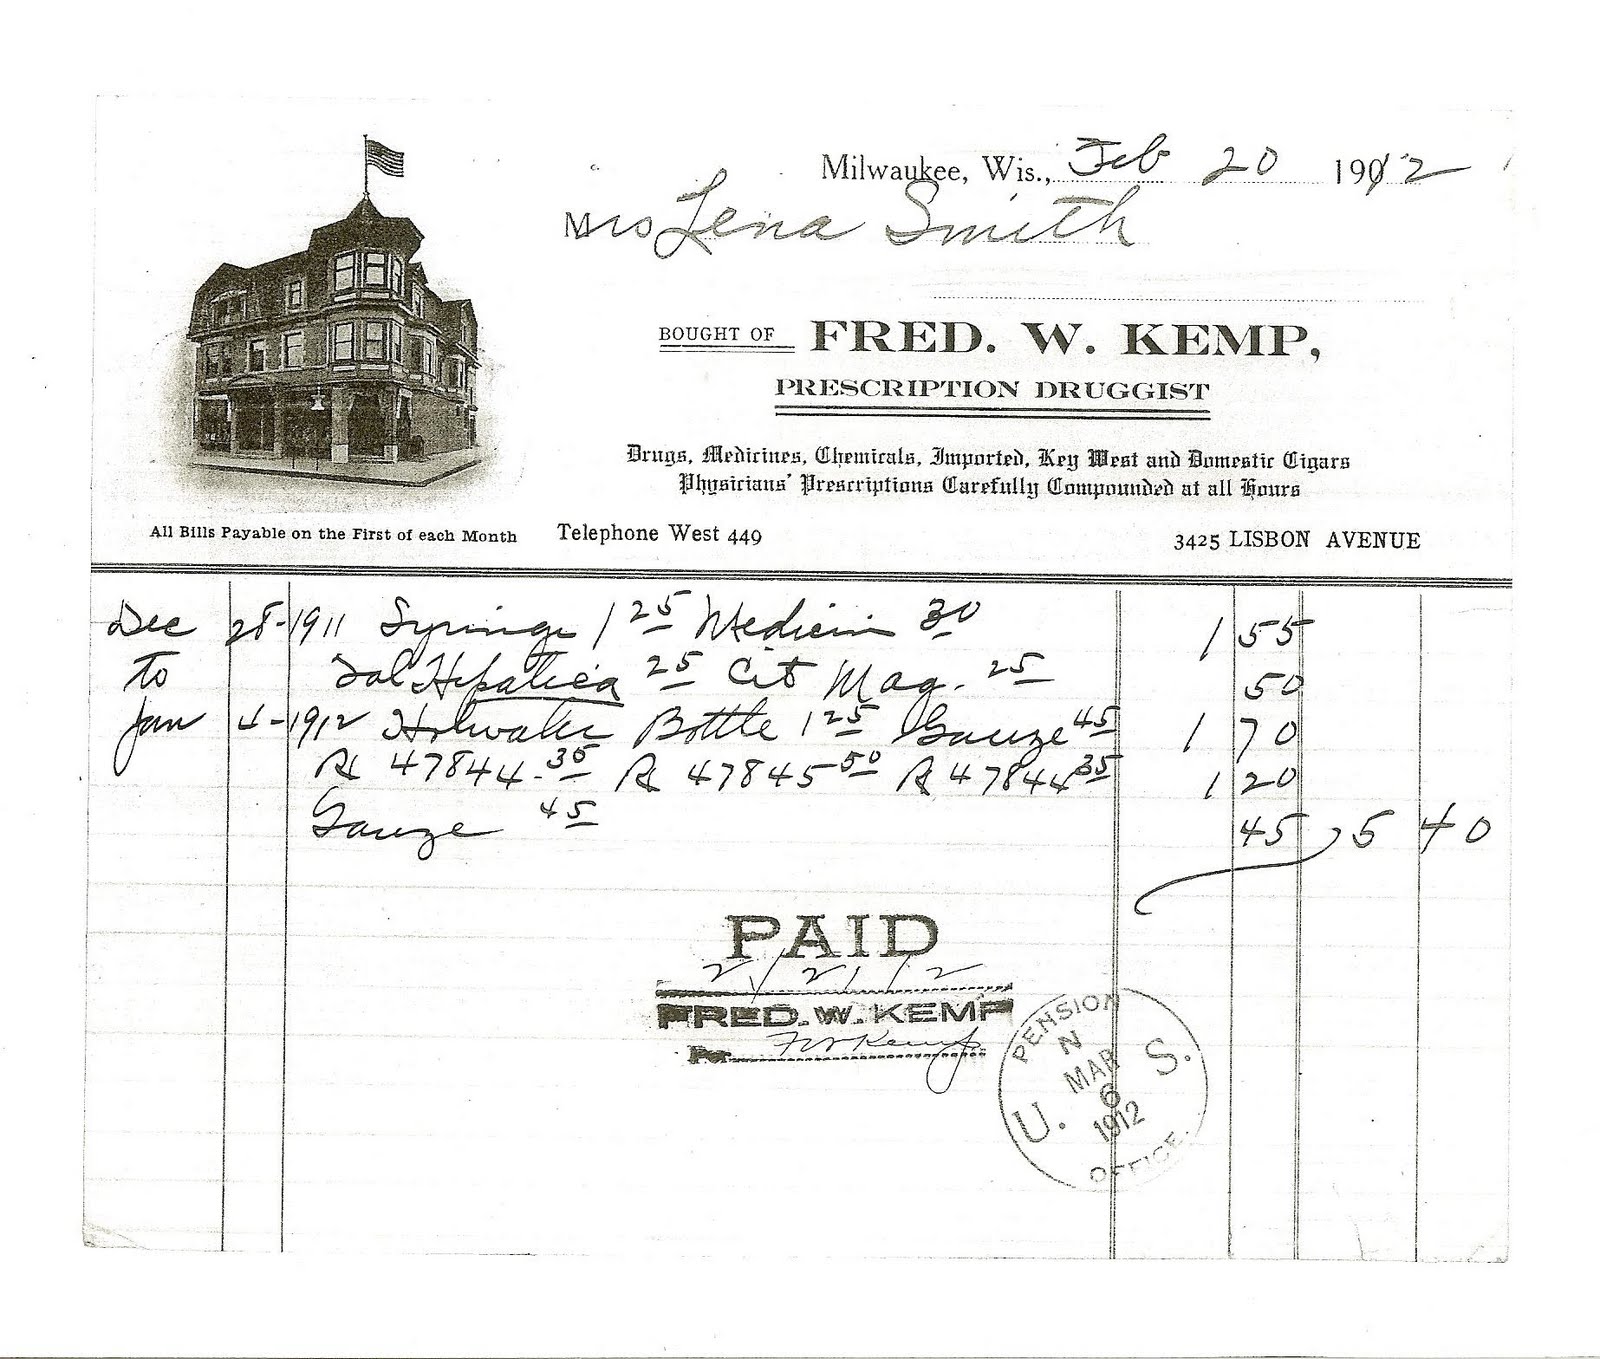 Milwaukee, Wis., Feb 20 1912
Mrs Lena Smith
BOUGHT OF FRED. W. KEMP,
PRESCRIPTION DRUGGIST
Drugs, Medicines, Chemicals, Imported, Key West and Domestic Cigars
Physicians' Prescriptions Carefully Compounded at all Hours
All Bills Payable on the First of each Month Telephone West 449 3425 LISBON AVENUE
Dec 28-1911 Syringe 1 25 Medicin 30 1 55
to Sal Hepatica 25 Cit Mag. 25 50
Jan 4-1912 Hotwater Bottle 1 25 Gauze 45 1 70
Rx 47844-35 Rx 47845 50 Rx 47844 35 1 20
Gauze 45 45 5 40
PAID
2/21/12
FRED. W. KEMP
Per F W Kemp
PENSION
N
MAR
6
1912
U. S.
OFFICE.